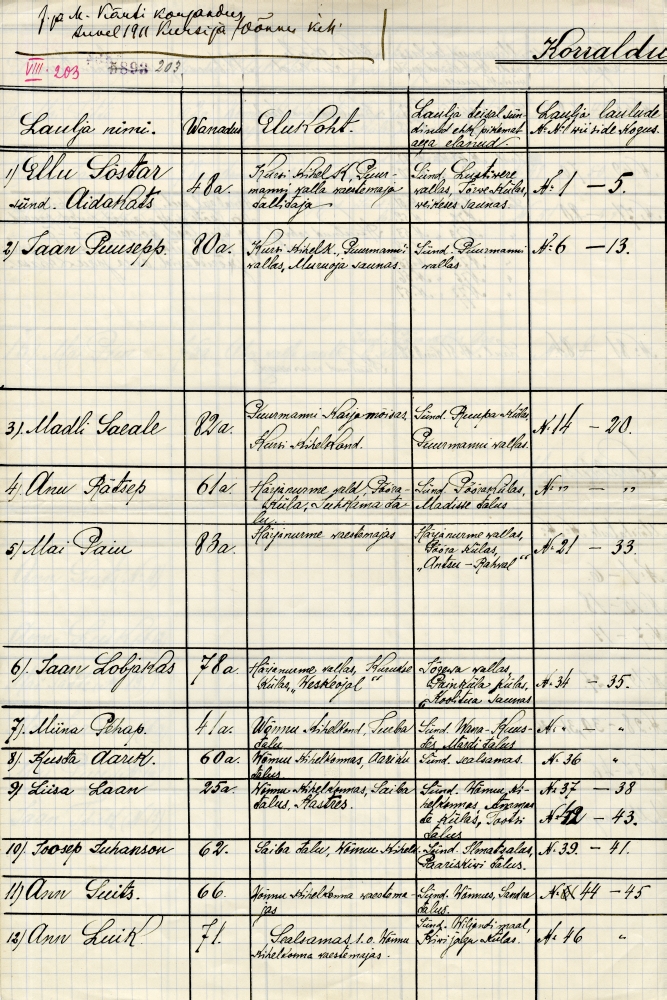 J. ja M. Kärdi korjandus
suvel 1911 Kursi ja Võnnu kih.
VIII. 203
5893 203
Korraldu
Laulja nimi. Wanadus Elukoht. Laulja teisal sün-
dinud ehk pikemat
aega elanud. Laulja laulude
№ №! wiiside kogus.
1) Ellu Sostar
sünd. Aidakats 48 a. Kursi kihelk, Puur-
manni walla waestemaja
tallidaja Sünd. Lustiwere
wallas, Törwe külas,
weikeses saunas. № 1 – 5.
2) Jaan Puusepp. 80 a. Kursi kihelk., Puurmanni
wallas, Muruoja saunas. Sünd. Puurmanni
wallas № 6 – 13.
3) Madli Saeale 82 a. Puurmanni Karjamõisas,
Kursi kihelkond. Sünd.
Puurmanni wallas. № 14 – 20.
4) Anu Rätsep 61 a. Härjanurme wald, Pööra-
küla, ta-
lu. Sünd. Pöörakülas,
Madisse talus № „ – „
5) Mai Paiu 83 a. Härjanurme waestemajas Härjanurme wallas,
Pööra külas,
„Antsu – Rahwal“ № 21 – 33.
6) Jaan Lobjakas 78 a. Härjanurme wallas,
külas, „Weskeojal“ Jõgewa wallas,
Painküla külas,
saunas № 34 – 35.
7) Miina Pehap. 41 a. Wõnnu kihelkond,
talu Sünd. Wana-Kuus-
tes Mardi talus № „ – „
8) Kusta Aarik. 60 a. Wõnnu kihelkonnas, Aariku
talus Sünd. sealsamas. № 36 „
9) Liisa Laan 25 a. Wõnnu kihelkonnas, Saiba
talus, Kastres. Sünd. Wõnnu ki-
helkonnas,
külas, Tootsi
talus № 37 – 38
№ 42 – 43.
10) Joosep Juhanson 62. Saiba talu, Wõnnu kihelk. Sünd.
Paariskiwi talus. № 39 – 41.
11) Ann Suits. 66. Wõnnu kihelkonna waestema-
jas Sünd. Wõnnus, Sandra
talus. № 44 – 45
12) Ann Luik. 71. Sealsamas, s. o. Wõnnu
kihelkonna waestemajas. Sünd. Wiljandi maal,
Kiwijalga külas. № 46 „